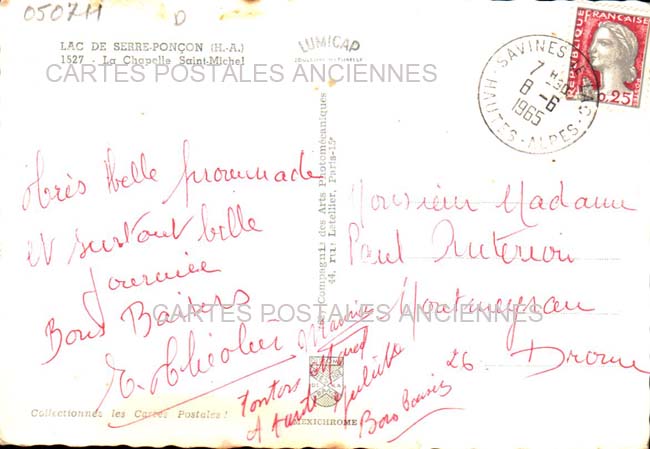 050711 D
LAC DE SERRE-PONÇON (H.-A.)
1527 - La Chapelle Saint-Michel
LUMICAP
COULEUR NATURELLE
CARTES POSTALES ANCIENNES
SAVINES LE LAC
7 H 30
8 - 6
1965
HAUTES-ALPES
REPUBLIQUE FRANÇAISE
0,25
très belle promenade
et surtout belle
journée
Bons Baisers
Compagnie des Arts Photomécaniques
44, rue Letellier, Paris-15e
Monsieur Madame
Paul
Montmeyran
26 Drome
CARTES POSTALES ANCIENNES
Tonton
et tante Juliette
Bons baisers
Collectionnez les Cartes Postales !
MEXICHROME